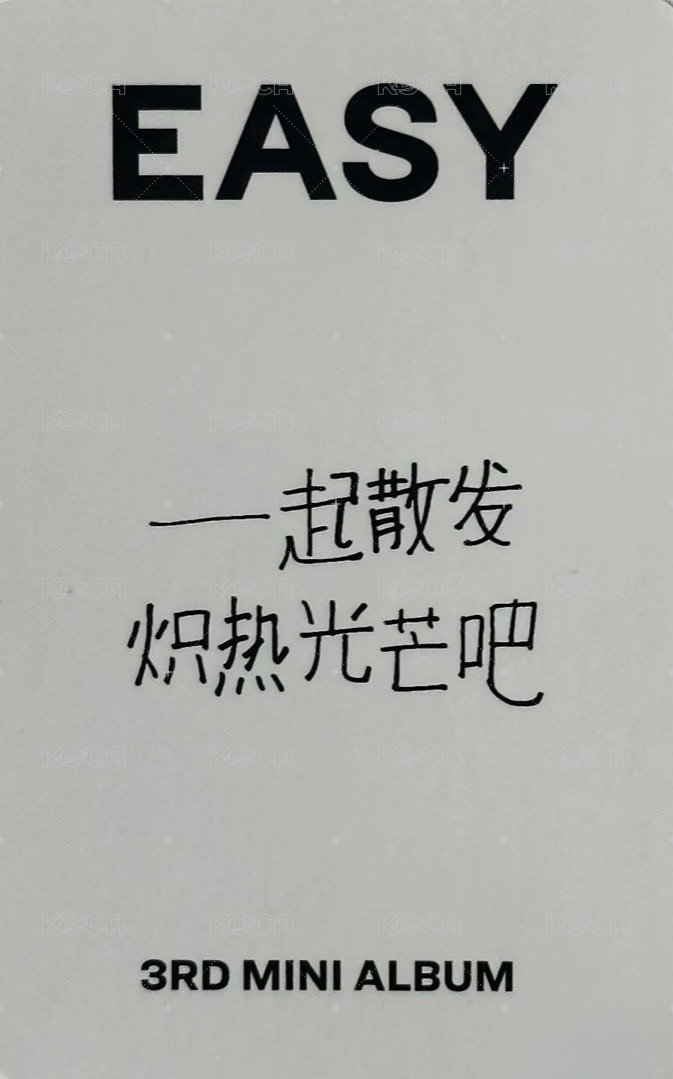 EASY
一起散发
炽热光芒吧
3RD MINI ALBUM
KOCA